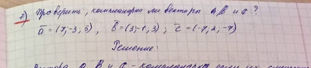 2) Проверить, компланарны ли векторы a, b и c?
a = (7, -3, 5), b = (3, -1, 3), c = (-7, 2, -7)
Решение:
a, b и c - компланарны